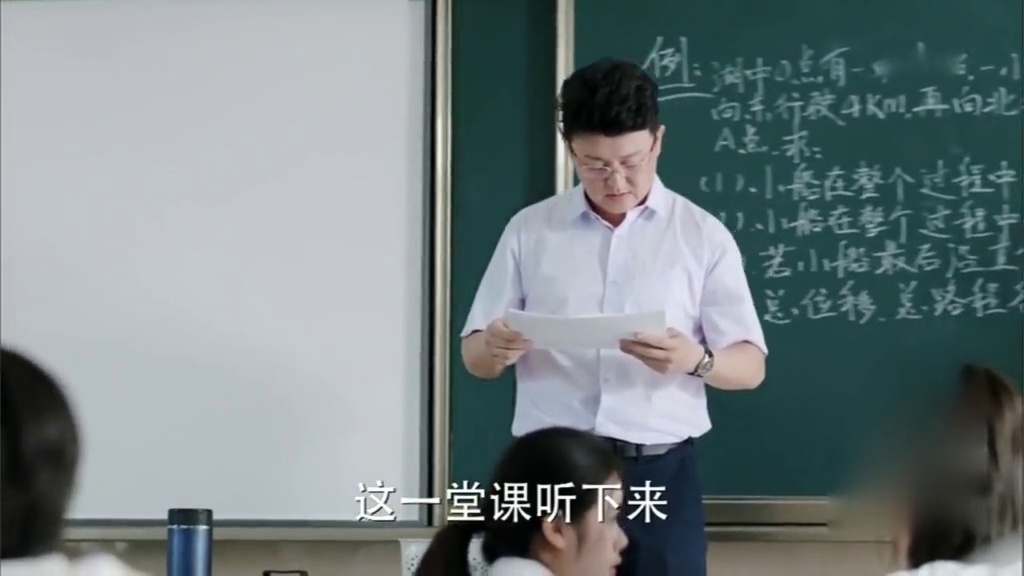 例：湖中O点有一
向东行驶4Km，再向北
A点．求：
(1)．小船在整个过程中
小船在整个过程中
若小船最后
总位移．总路程
这一堂课听下来